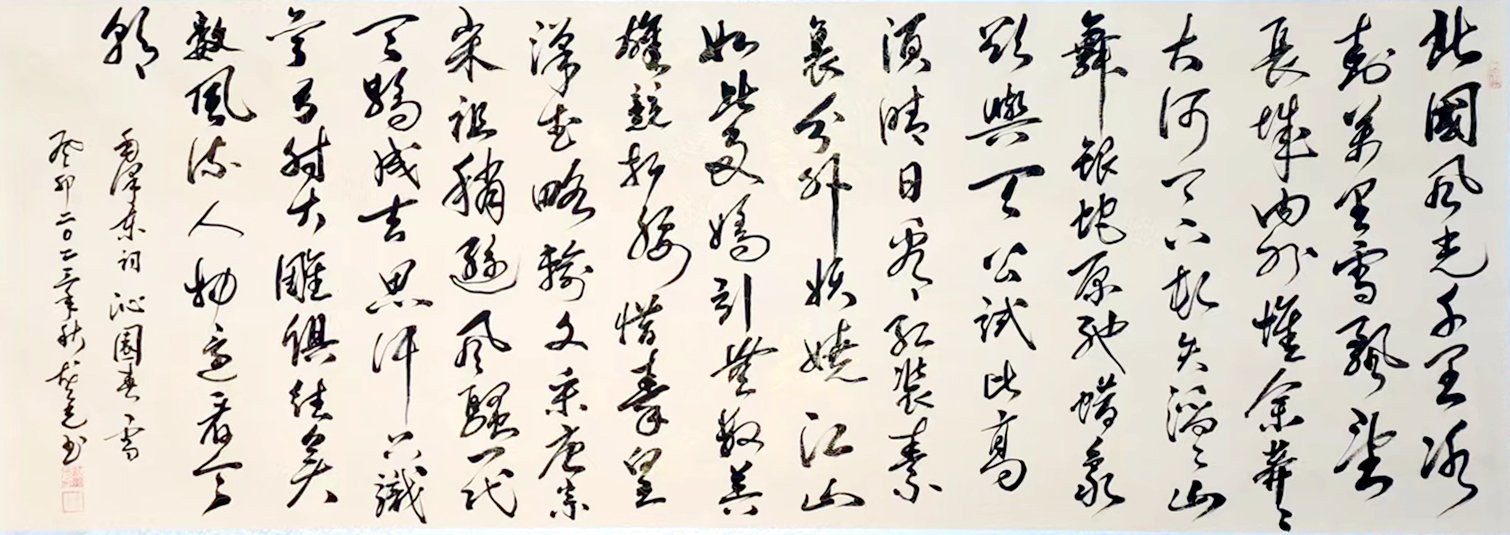 北國風光千里冰
封萬里雪飄望
長城內外惟余莽〻
大河上下頓失滔〻山
舞銀蛇原馳蠟象
欲與天公試比高
須晴日看紅裝素
裹分外妖嬈江山
如此多嬌引無數英
雄競折腰惜秦皇
漢武略輸文采唐宗
宋祖稍遜風騷一代
天驕成吉思汗只識
彎弓射大雕俱往矣
數風流人物還看今
朝
毛澤東詞 沁園春 雪
癸卯二〇二三年秋 书